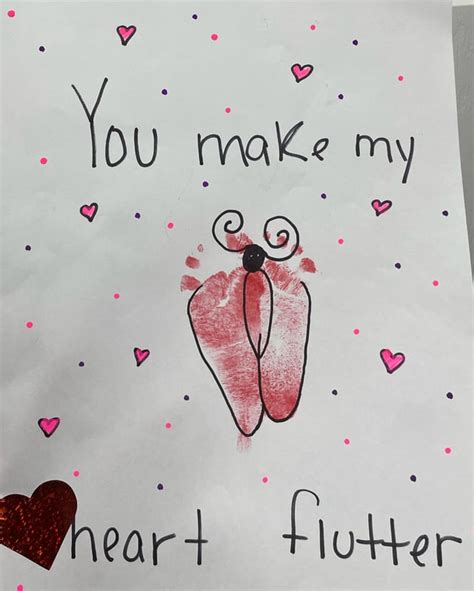 You make my
heart flutter